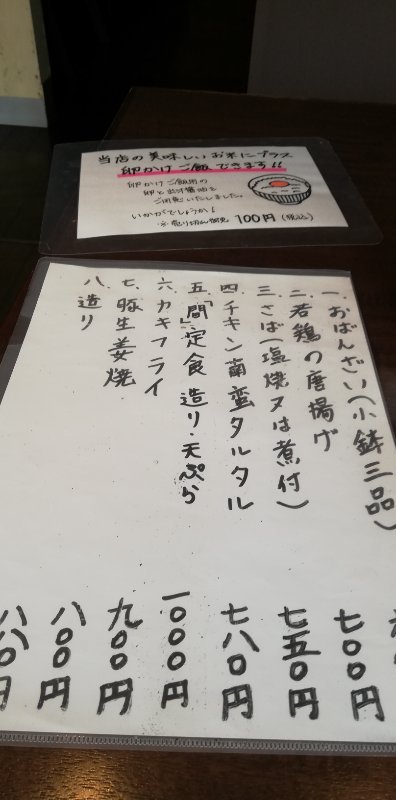 当店の美味しいお米にプラス
卵かけご飯できます!!
卵かけご飯用の
卵と出汁醤油を
ご用意いたしました。
いかがでしょうか!
※売り切れ御免 100円(税込)
一.おばんざい(小鉢三品)
二.若鶏の唐揚げ 七〇〇円
三.さば(塩焼又は煮付) 七五〇円
四.チキン南蛮タルタル 七八〇円
五.「問」定食 造り・天ぷら 一〇〇〇円
六.カキフライ 九〇〇円
七.豚生姜焼 八〇〇円
八.造り 八八〇円